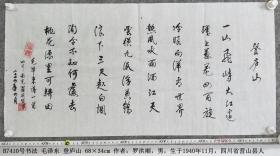 登庐山
一山飞峙大江边
跃上葱茏四百旋
冷眼向洋看世界
热风吹雨洒江天
云横九派浮黄鹤
浪下三吴起白烟
陶令不知何处去
桃花源里可耕田
毛泽东诗一首
B7410号书法 毛泽东 登庐山 68×34cm 作者：罗洪湘，男，生于1940年11月，四川省营山县人